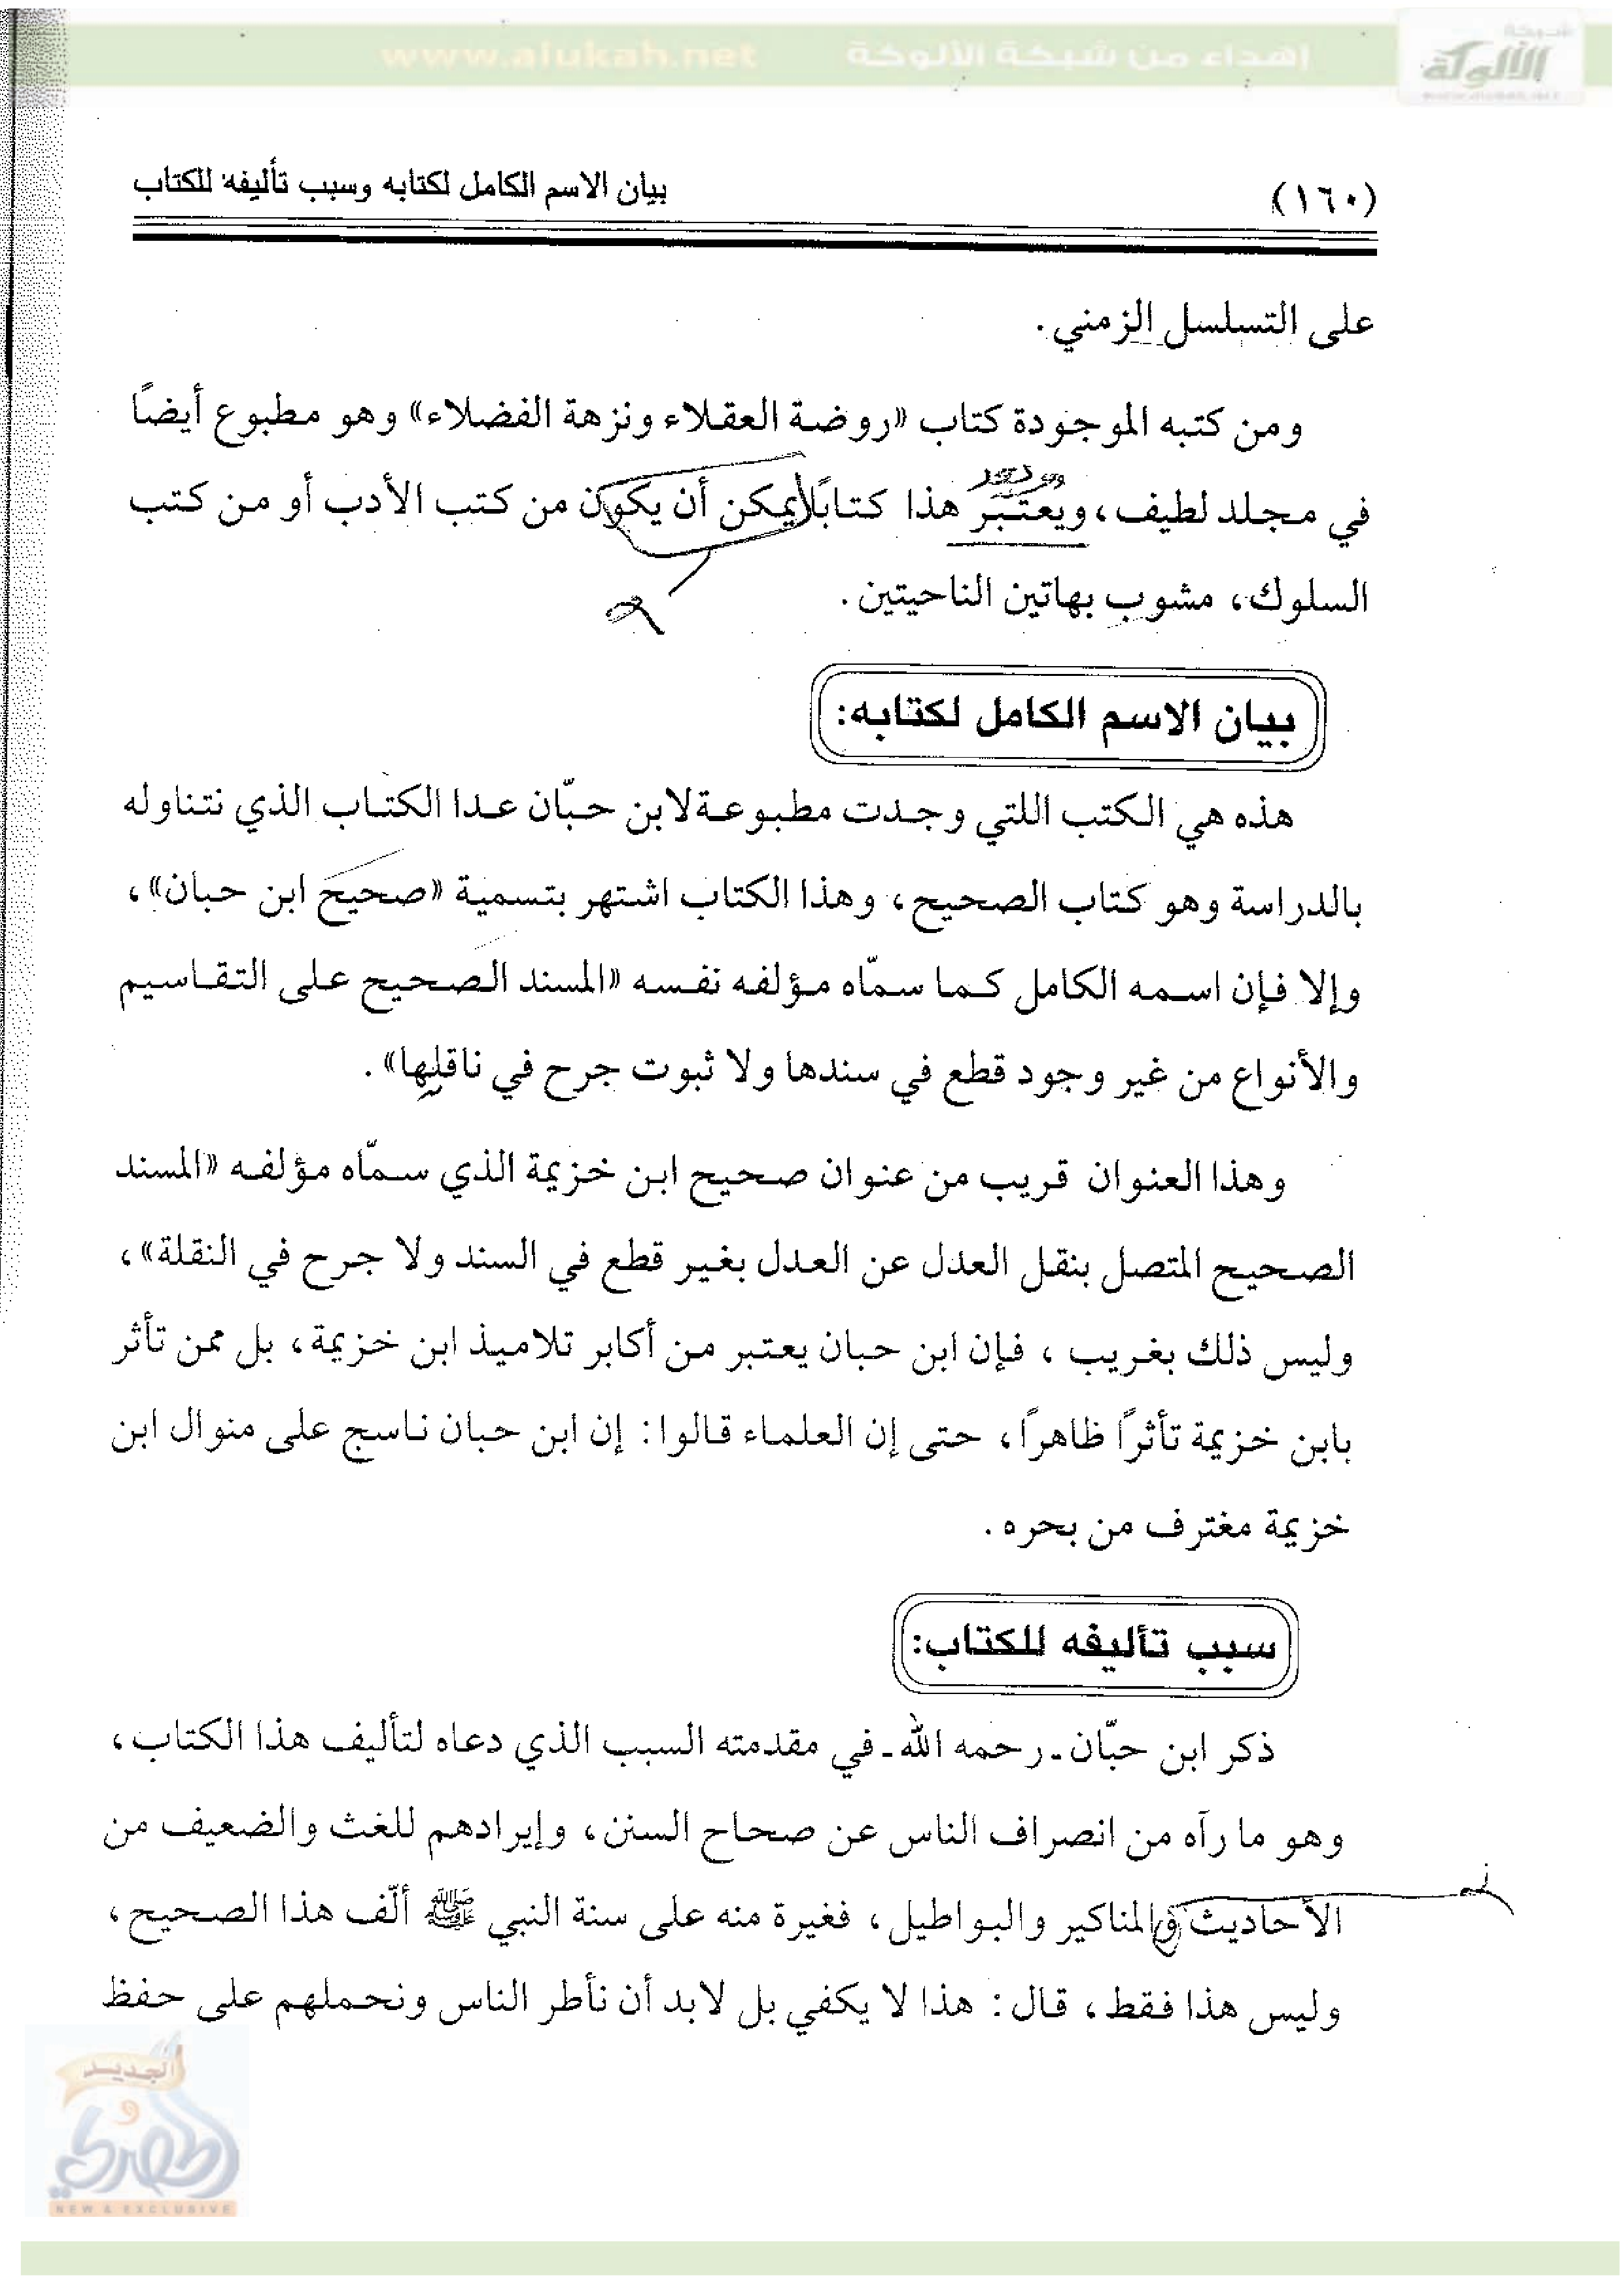 www.alukah.net إهداء من شبكة الألوكة
شبكة
الألوكة
(١٦٠) بيان الاسم الكامل لكتابه وسبب تأليفه للكتاب
على التسلسل الزمني.
ومن كتبه الموجودة كتاب «روضة العقلاء ونزهة الفضلاء» وهو مطبوع أيضًا
في مجلد لطيف، ويعتبر هذا كتابًا يمكن أن يكون من كتب الأدب أو من كتب
السلوك، مشوب بهاتين الناحيتين.
بيان الاسم الكامل لكتابه:
هذه هي الكتب اللتي وجدت مطبوعة لابن حبّان عدا الكتاب الذي نتناوله
بالدراسة وهو كتاب الصحيح، وهذا الكتاب اشتهر بتسمية «صحيح ابن حبان»،
وإلا فإن اسمه الكامل كما سمّاه مؤلفه نفسه «المسند الصحيح على التقاسيم
والأنواع من غير وجود قطع في سندها ولا ثبوت جرح في ناقليها».
وهذا العنوان قريب من عنوان صحيح ابن خزيمة الذي سمّاه مؤلفه «المسند
الصحيح المتصل بنقل العدل عن العدل بغير قطع في السند ولا جرح في النقلة»،
وليس ذلك بغريب ، فإن ابن حبان يعتبر من أكابر تلاميذ ابن خزيمة، بل ممن تأثر
بابن خزيمة تأثرًا ظاهرًا، حتى إن العلماء قالوا: إن ابن حبان ناسج على منوال ابن
خزيمة مغترف من بحره.
سبب تأليفه للكتاب:
ذكر ابن حبّان ـ رحمه الله ـ في مقدمته السبب الذي دعاه لتأليف هذا الكتاب،
وهو ما رآه من انصراف الناس عن صحاح السنن، وإيرادهم للغث والضعيف من
الأحاديث والمناكير والبواطيل، فغيرة منه على سنة النبي ﷺ ألّف هذا الصحيح،
وليس هذا فقط، قال: هذا لا يكفي بل لابد أن نأطر الناس ونحملهم على حفظ
الجديد
و
الحصري
NEW & EXCLUSIVE